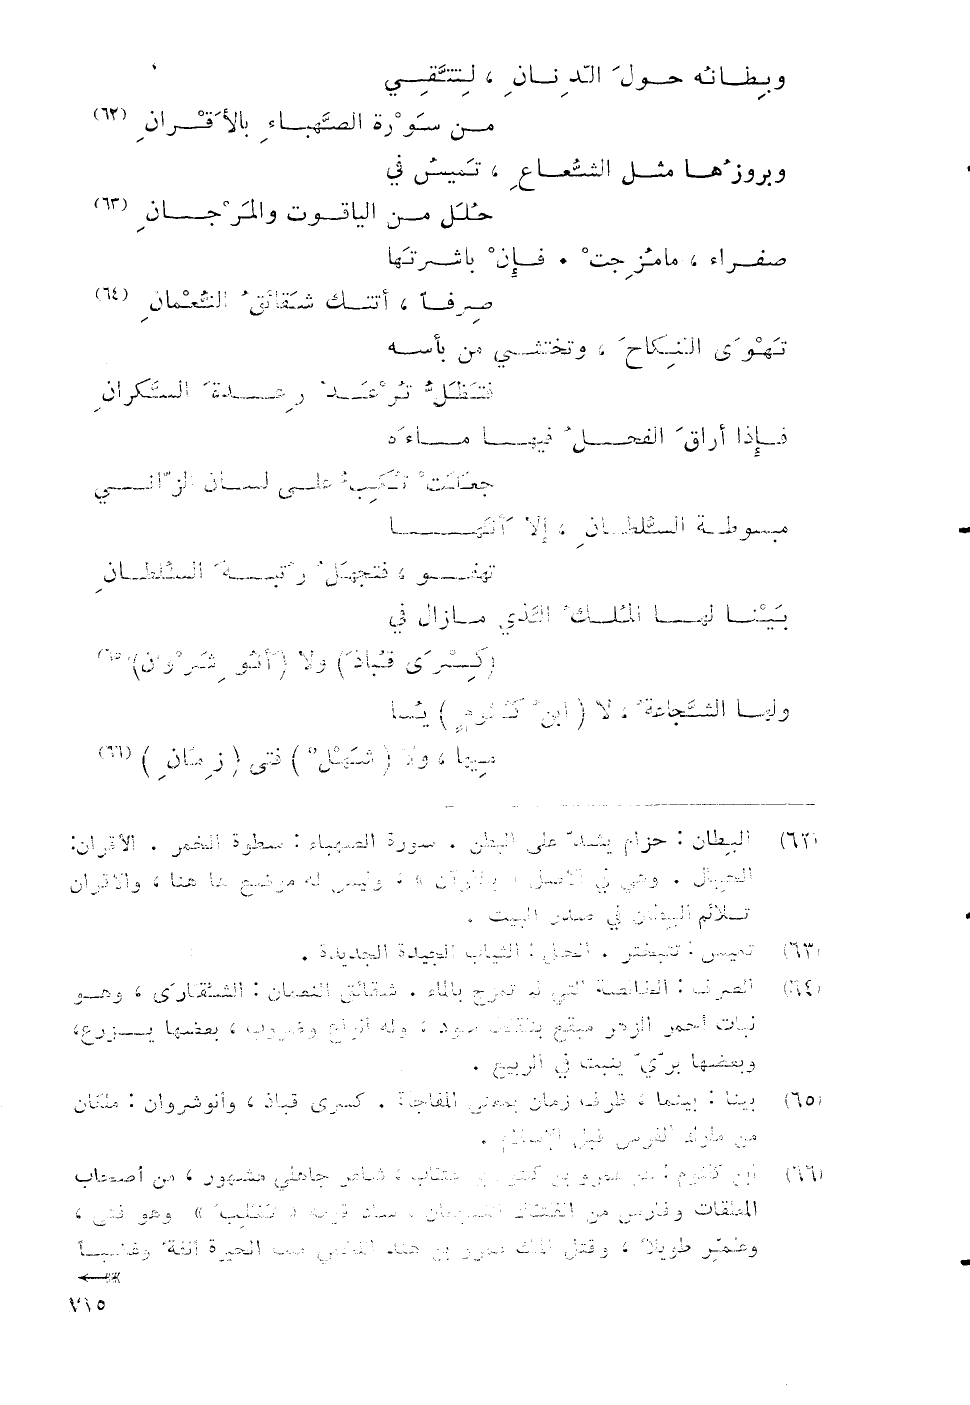 وبِطانه حولَ الدِنانِ ، لتتَّقي
من سَوْرة الصَّهباءِ بالأَقْرانِ (٦٢)
وبروزُها مثل الشُّعاعِ ، تَميسُ في
حُلَل من الياقوت والمَرْجانِ (٦٣)
صفراء ، مامُزِجتْ . فإِنْ باشرتَها
صِرفاً ، أتتك شَقائقُ النُّعْمانِ (٦٤)
تَهْوَى النِكاحَ ، وتختشي من بأسه
فتَظَلُّ تُرْعَدُ رِعدةَ السَّكرانِ
فإِذا أراقَ الفحلُ فيها ماءَه
جعلتْ تكبُّ على لسان الزّاني
مبسوطة السُّلطانِ ، إلا أنَّها
تهفو ، فتجهلُ رتبةَ السُّلطانِ
بَيْنا لها المُلكُ الَّذي مازال في
(كِسْرَى قُباذَ) ولا (أَنُوشِرْوانِ) (٦٥)
ولها الشَّجاعةُ ، لا (ابنُ كُلثومٍ) يُسا
مِيها ، ولا (شَهْلٌ) فتى (زِمّانِ) (٦٦)
(٦٢) البِطان : حزام يشدّ على البطن . سورة الصهباء : سطوة الخمر . الأقران:
الحبال . وهي في الأصل ، وليس له موضع ها هنا ، والأقران
تلائم البطان في صدر البيت .
(٦٣) تميس : تتبختر . الحلل : الثياب الجيدة الجديدة .
(٦٤) الصرف : الخالصة التي لم تمزج بالماء . شقائق النعمان : الشُّقارَى ، وهو
نبات أحمر الزهر مبقع بنقط سود ، وله أنواع وضروب ، بعضها يزرع،
وبعضها برّيّ ينبت في الربيع .
(٦٥) بينا : بينما ، ظرف زمان بمعنى المفاجأة . كسرى قباذ ، وأنوشروان : ملكان
من ملوك الفرس قبل الإسلام .
(٦٦) ابن كلثوم : عمرو بن كلثوم بن عتّاب ، شاعر جاهلي مشهور ، من أصحاب
المعلقات وفارس من الفتاك الشجعان ، ساد قومه « تَغْلِب » وهو فتى ،
وعُمِّر طويلاً ، وقتل الملك عمرو بن هند اللخمي ملك الحيرة أنفة وغضباً
٧١٥